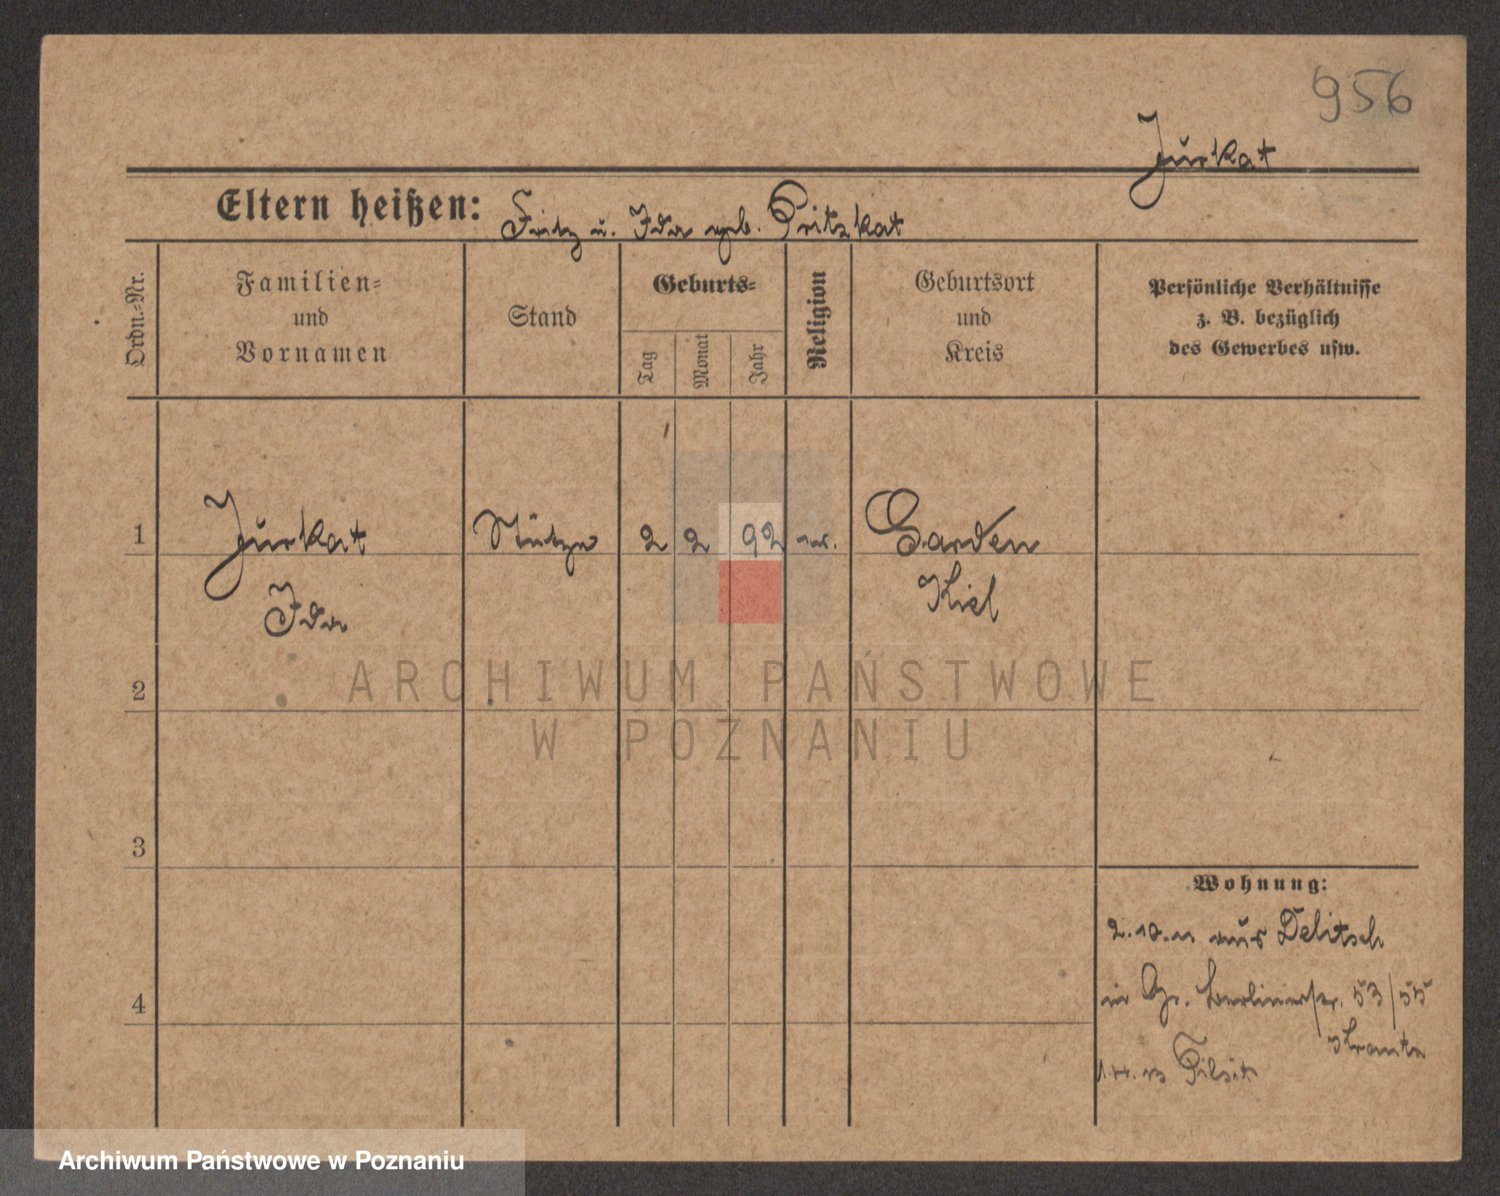 956
Jurkat
Eltern heißen: Fritz u. Ida geb. Pritzkat
Ordn.-Nr.
Familien-
und
Vornamen
Stand
Geburts-
Tag
Monat
Jahr
Religion
Geburtsort
und
Kreis
Persönliche Verhältnisse
z. B. bezüglich
des Gewerbes usw.
1 Jurkat Stütze 2 2 92 Garden
Ida Kiel
2
3
4
Wohnung:
2.10.11 aus Delitsch
in Berlinerstr. 53/55
Krantz
1.4.13 Tilsit
ARCHIWUM PAŃSTWOWE
W POZNANIU
Archiwum Państwowe w Poznaniu